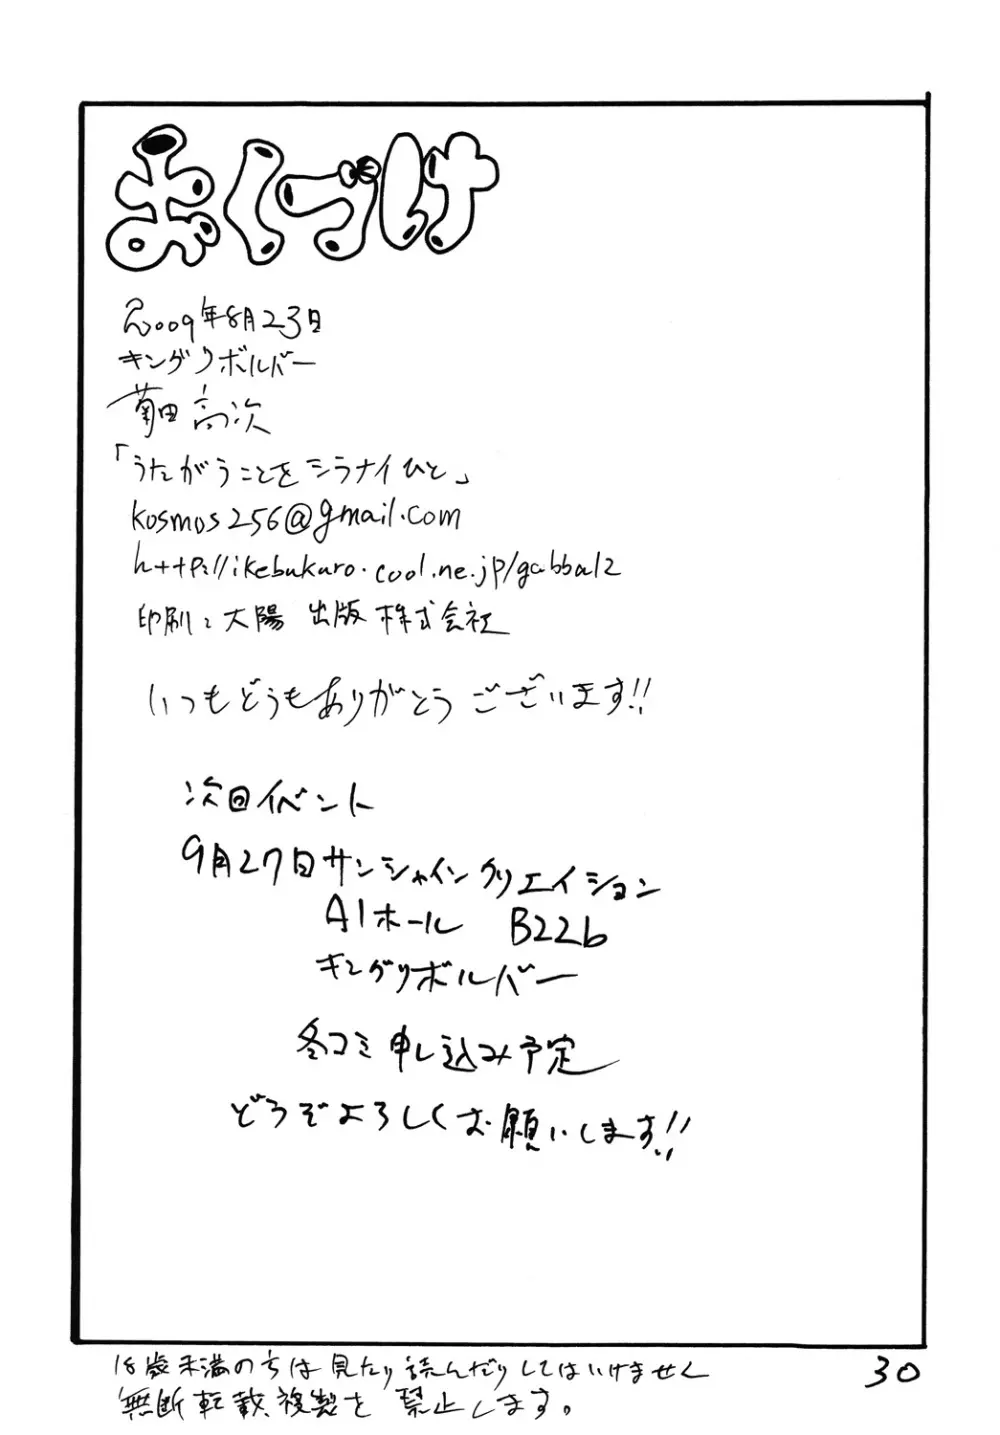 おくづけ
2009年8月23日
キングリボルバー
菊田高次
「うたがうことをシラナイひと」
kosmos256@gmail.com
http://ikebukuro.cool.ne.jp/gabba12
印刷:大陽出版株式会社
いつもどうもありがとうございます!!
次回イベント
9月27日サンシャインクリエイション
A1ホール B22b
キングリボルバー
冬コミ申し込み予定
どうぞよろしくお願いします!!
18歳未満の方は見たり読んだりしてはいけませく
無断転載、複製を禁止します。
30